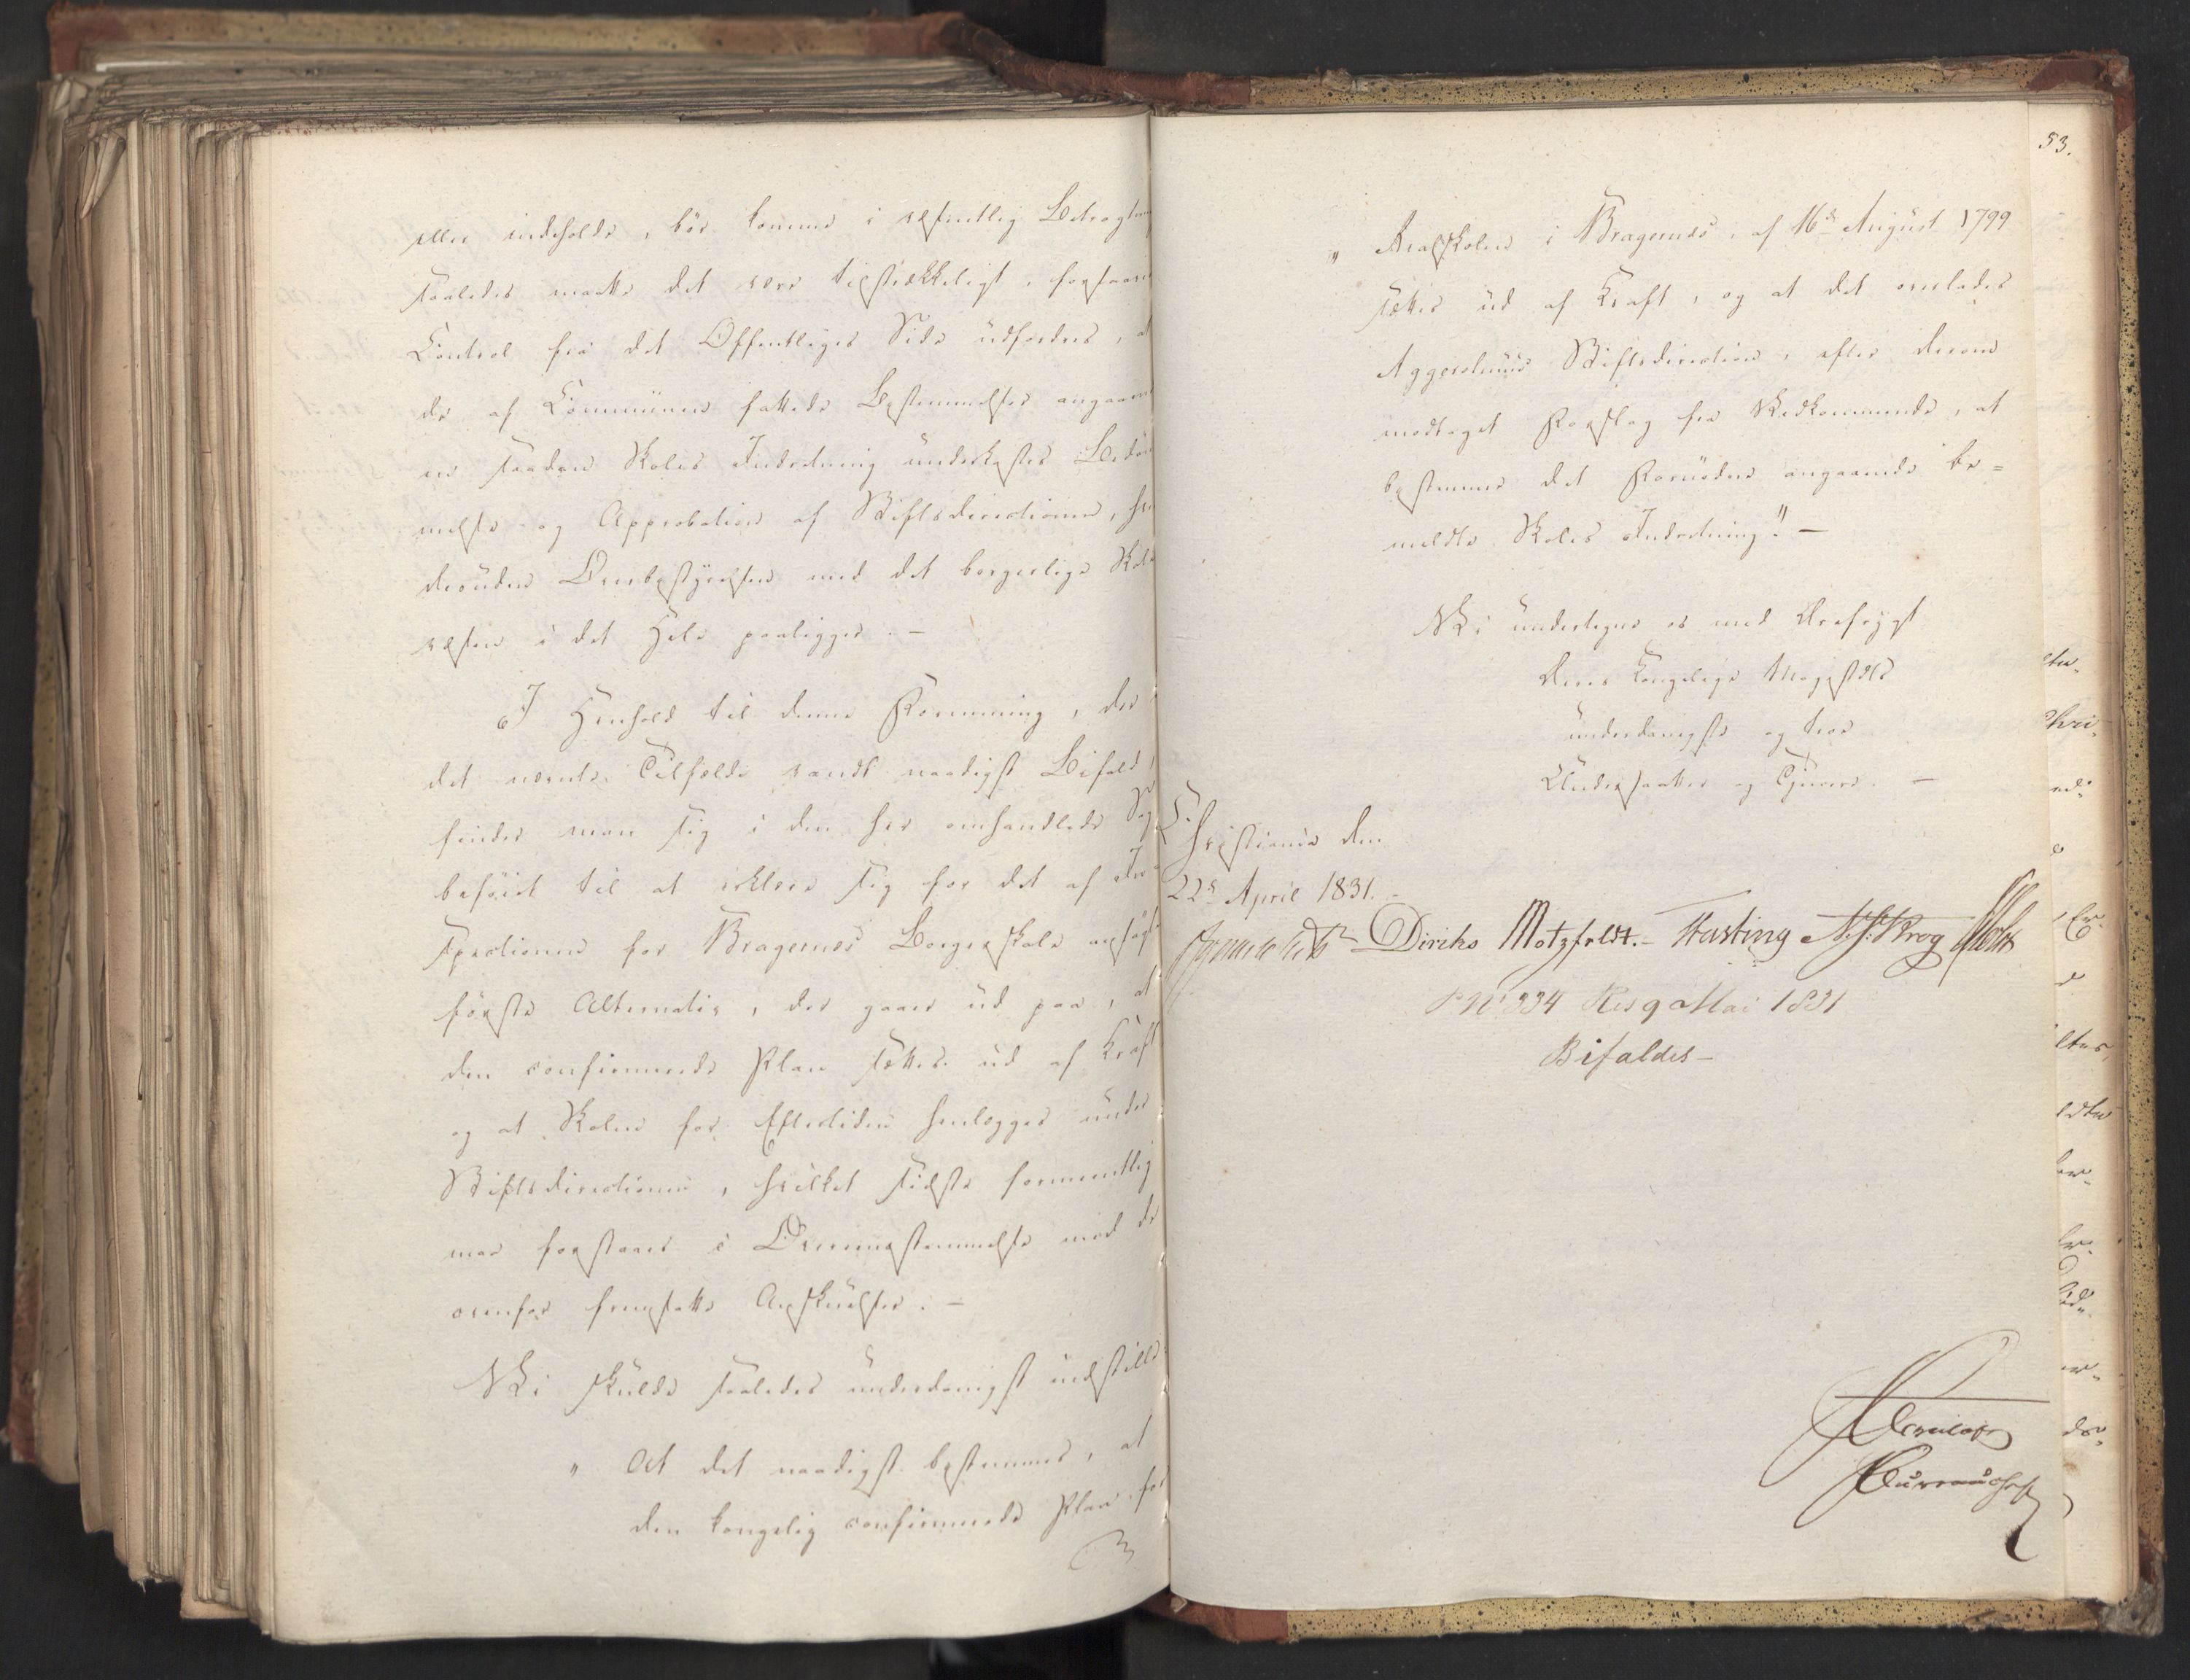 eller indeholde, bør komme i væsentlig Betragtning
saaledes maatte det være tilstrækkeligt, forsaavidt
Control fra det Offentliges Side udfordres, at
de af Communen fattede Bestemmelser angaaende
en saadan Skoles Indretning underkastes Bedøm-
melse og Approbation af Stiftsdirectionen, hvem
desuden Overbestyrelsen med det borgerlige Skole-
væsen i det Hele paaligger. –
I Henhold til denne Formening, der i
det nævnte Tilfælde vandt naadigst Bifald,
finder man sig i den her omhandlede Sag
beføiet til at erklære sig for det af In-
spectionen for Bragernes Borgerskole ansøgte
første Alternativ, der gaaer ud paa, at
den confirmerede Plan sættes ud af Kraft
og at Skolen for Eftertiden henlægges under
Stiftsdirectionen, hvilket sidste formeentlig
maa forstaaes i Overensstemmelse med de
ovenfor fremsatte Anskuelser. –
Vi skulde saaledes underdanigst indstille:
" At det naadigst bestemmes, at
den kongelig confirmerede Plan for
53.
" Realskolen i Bragernes, af 16de August 1799
sættes ud af Kraft, og at det overlades
Aggershuus Stiftsdirection, efter derom
modtaget Forslag fra Vedkommende, at
bestemme det Fornødne angaaende be=
meldte Skoles Indretning." –
Vi undertegne os med Ærefrygt
Deres Kongelige Majestæts
underdanigste og troe
Undersaatter og Tjenere. –
Christiania den
22de April 1831. –
Diriks Motzfeldt. – Fasting Krog Holst
No 334 Res 9 Mai 1831
Bifaldes –
Bureauchef